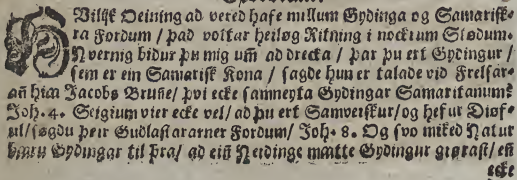 HVilijk Deining ad vered hafe millum Gydinga og Samarisk-
ra Fordum / þad vottar heiløg Ritning i nockrum Stødum.
Hvernig bidur þu mig um̃ ad drecka / þar þu ert Gydingur /
sem er ein Samarisk Kona / sagde hun er talade vid Frelsar-
an̄ hia Jacobs Brunne / þvi ecke samneyta Gydingar Samaritanum?
Joh. 4. Seigium vier ecke vel / ad þu ert Samverskur / og hefur Diøf-
ul / søgdu þeir Gudlastararner Fordum / Joh. 8. Og svo miked Hatur
baru Gydingar til þra / ad ein̄ Nerdinge mætte Gydingur giørast / en̄
ecke